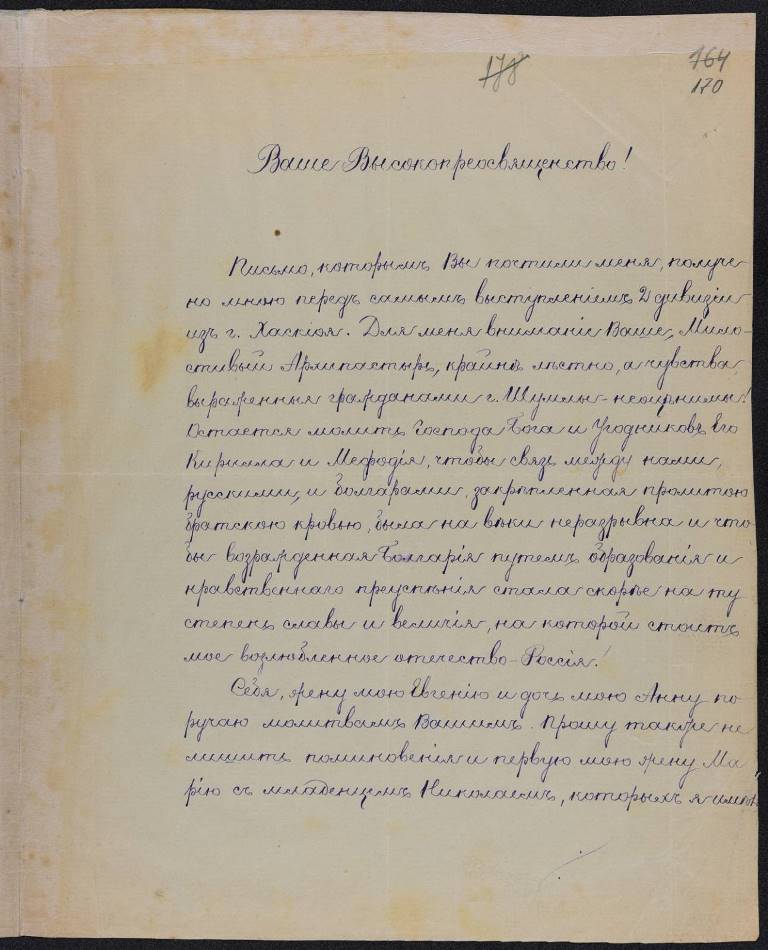 178
164
170
Ваше Высокопреосвященство!
Письмо, которымъ Вы почтили меня, получе-
но мною передъ самымъ выступленіемъ 2 дивизіи
изъ г. Хаскіоя. Для меня вниманіе Ваше, Мило-
стивый Архипастырь, крайнѣ лѣстно, а чувства
выраженныя гражданами г. Шумлы - неоцѣнимы!
Остается молить Господа Бога и Угодниковъ Его
Кирилла и Мефодія, чтобы связь между нами,
русскими, и болгарами, закрѣпленная пролитою
братскою кровью, была на вѣки неразрывна и что
бы возрожденная Болгарія путемъ образованія и
нравственнаго преуспѣнія стала скорѣе на ту
степень славы и величія, на которой стоитъ
мое возлюбленное отечество - Россія!
Себя, жену мою Евгенію и дочь мою Анну по
ручаю молитвамъ Вашимъ. Прошу также не
лишить поминовенія и первую мою жену Ма
рію съ младенцемъ Николаемъ, которыхъ я имѣлъ